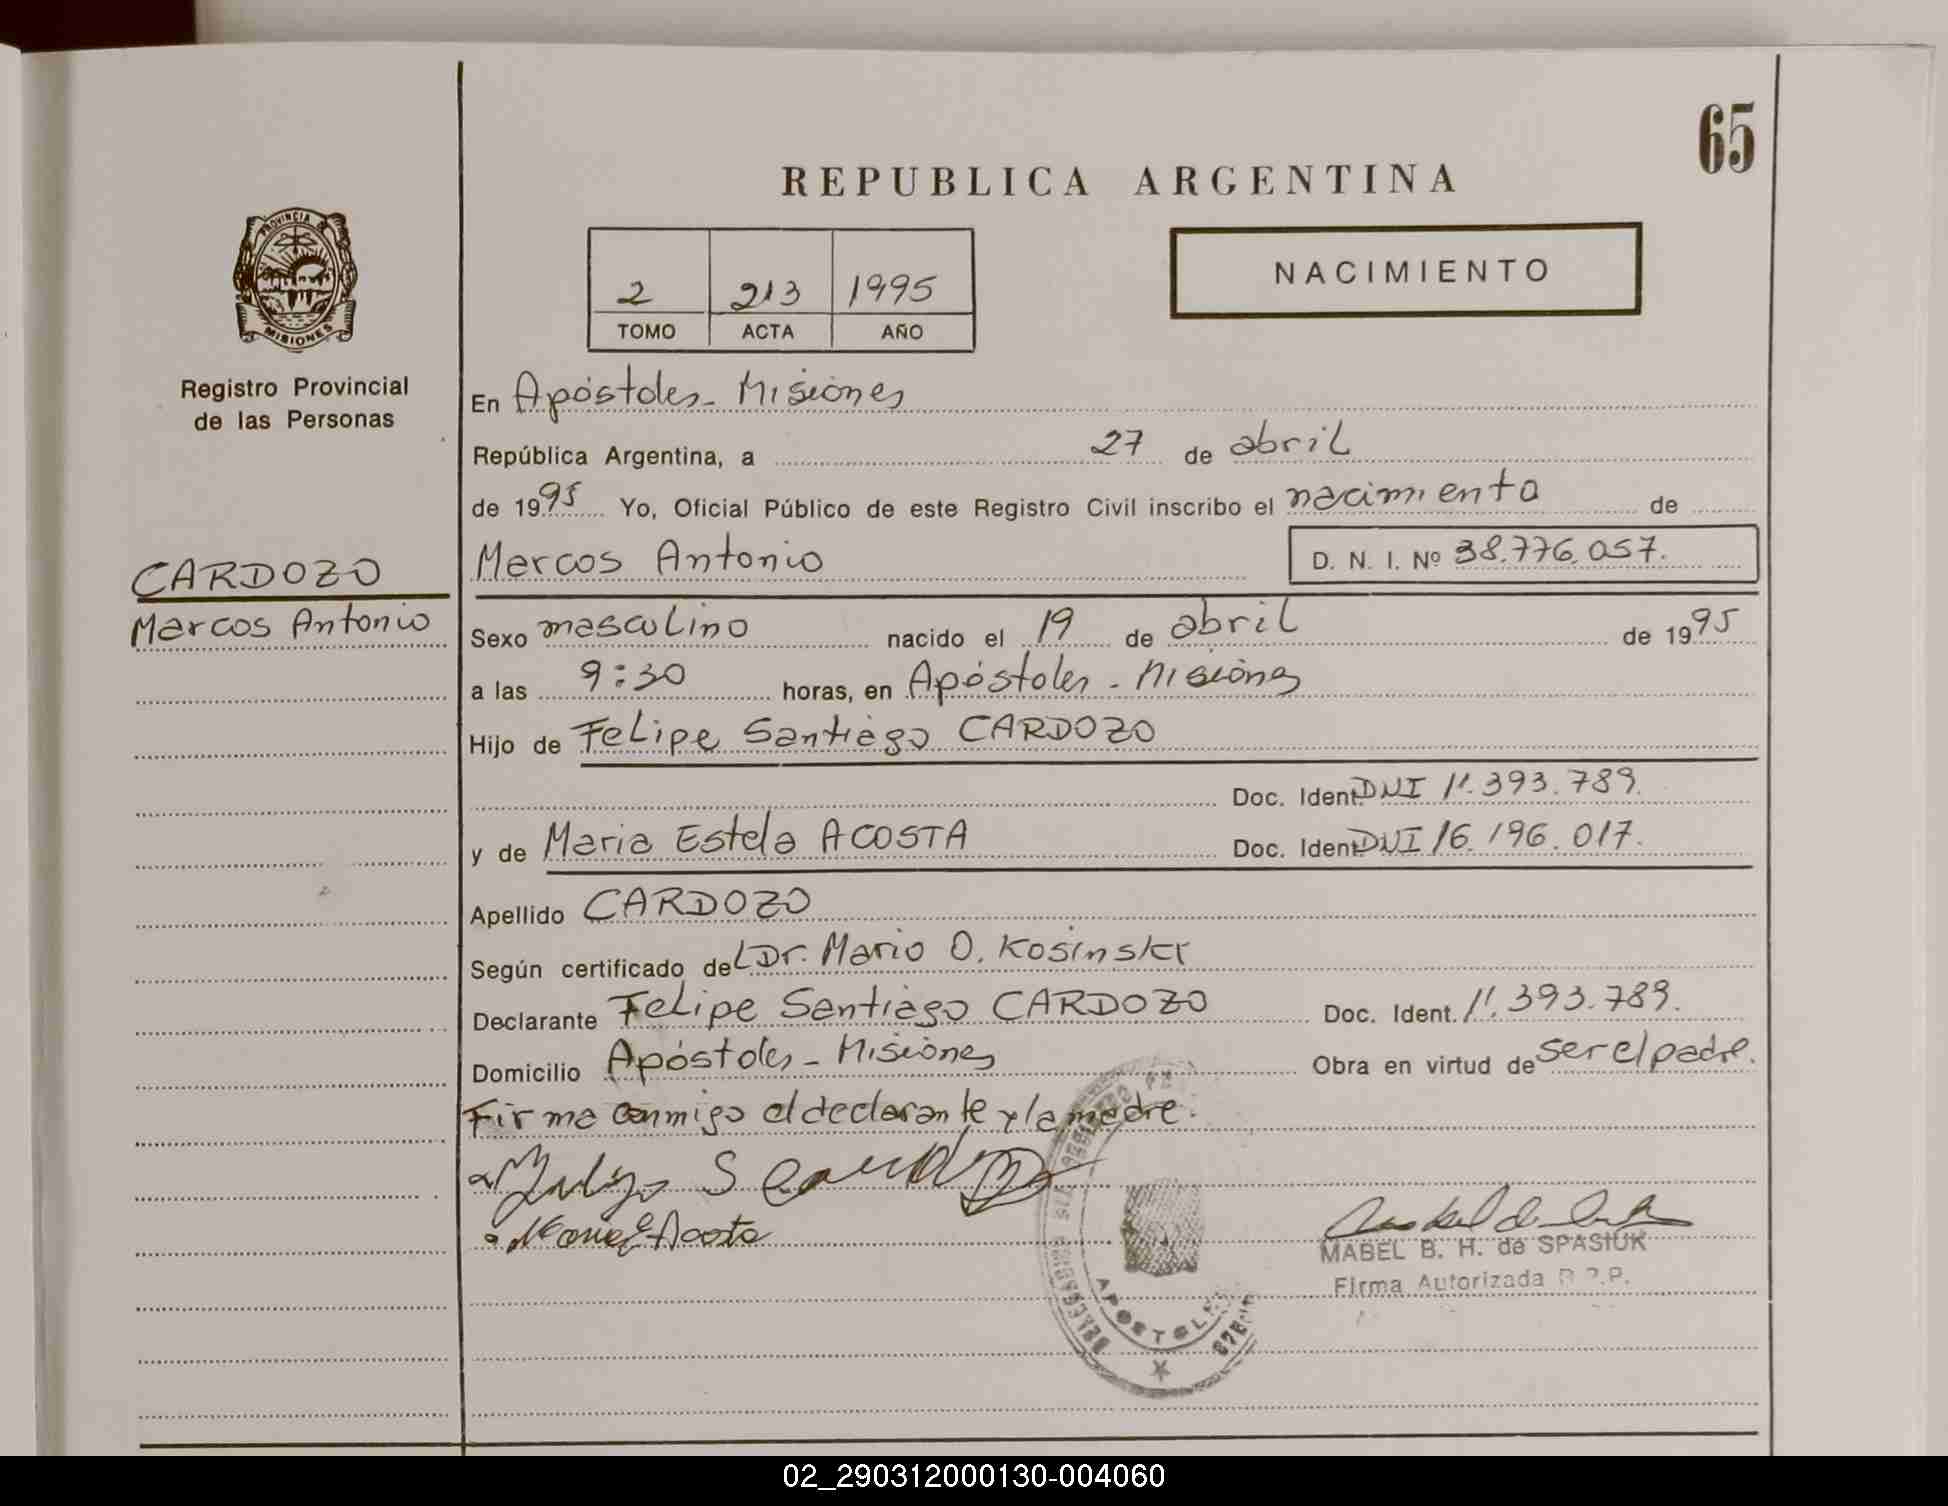 65
REPUBLICA ARGENTINA
PROVINCIA DE
MISIONES
Registro Provincial
de las Personas
2 213 1995
TOMO ACTA AÑO
NACIMIENTO
En Apóstoles - Misiones
República Argentina, a 27 de abril
de 1995 Yo, Oficial Público de este Registro Civil inscribo el nacimiento de
CARDOZO
Marcos Antonio
Marcos Antonio D. N. I. Nº 38.776.057.
Sexo masculino nacido el 19 de abril de 1995
a las 9:30 horas, en Apóstoles - Misiones
Hijo de Felipe Santiago CARDOZO
Doc. Ident. DNI 11.393.789.
y de Maria Estela ACOSTA Doc. Ident. DNI 16.196.017.
Apellido CARDOZO
Según certificado del Dr. Mario O. Kosinski
Declarante Felipe Santiago CARDOZO Doc. Ident. 11.393.789.
Domicilio Apóstoles - Misiones Obra en virtud de ser el padre.
Firma conmigo el declarante y la madre.
Maria E Acosta
MABEL B. H. de SPASIUK
Firma Autorizada R.P.P.
APOSTOLES
02_290312000130-004060